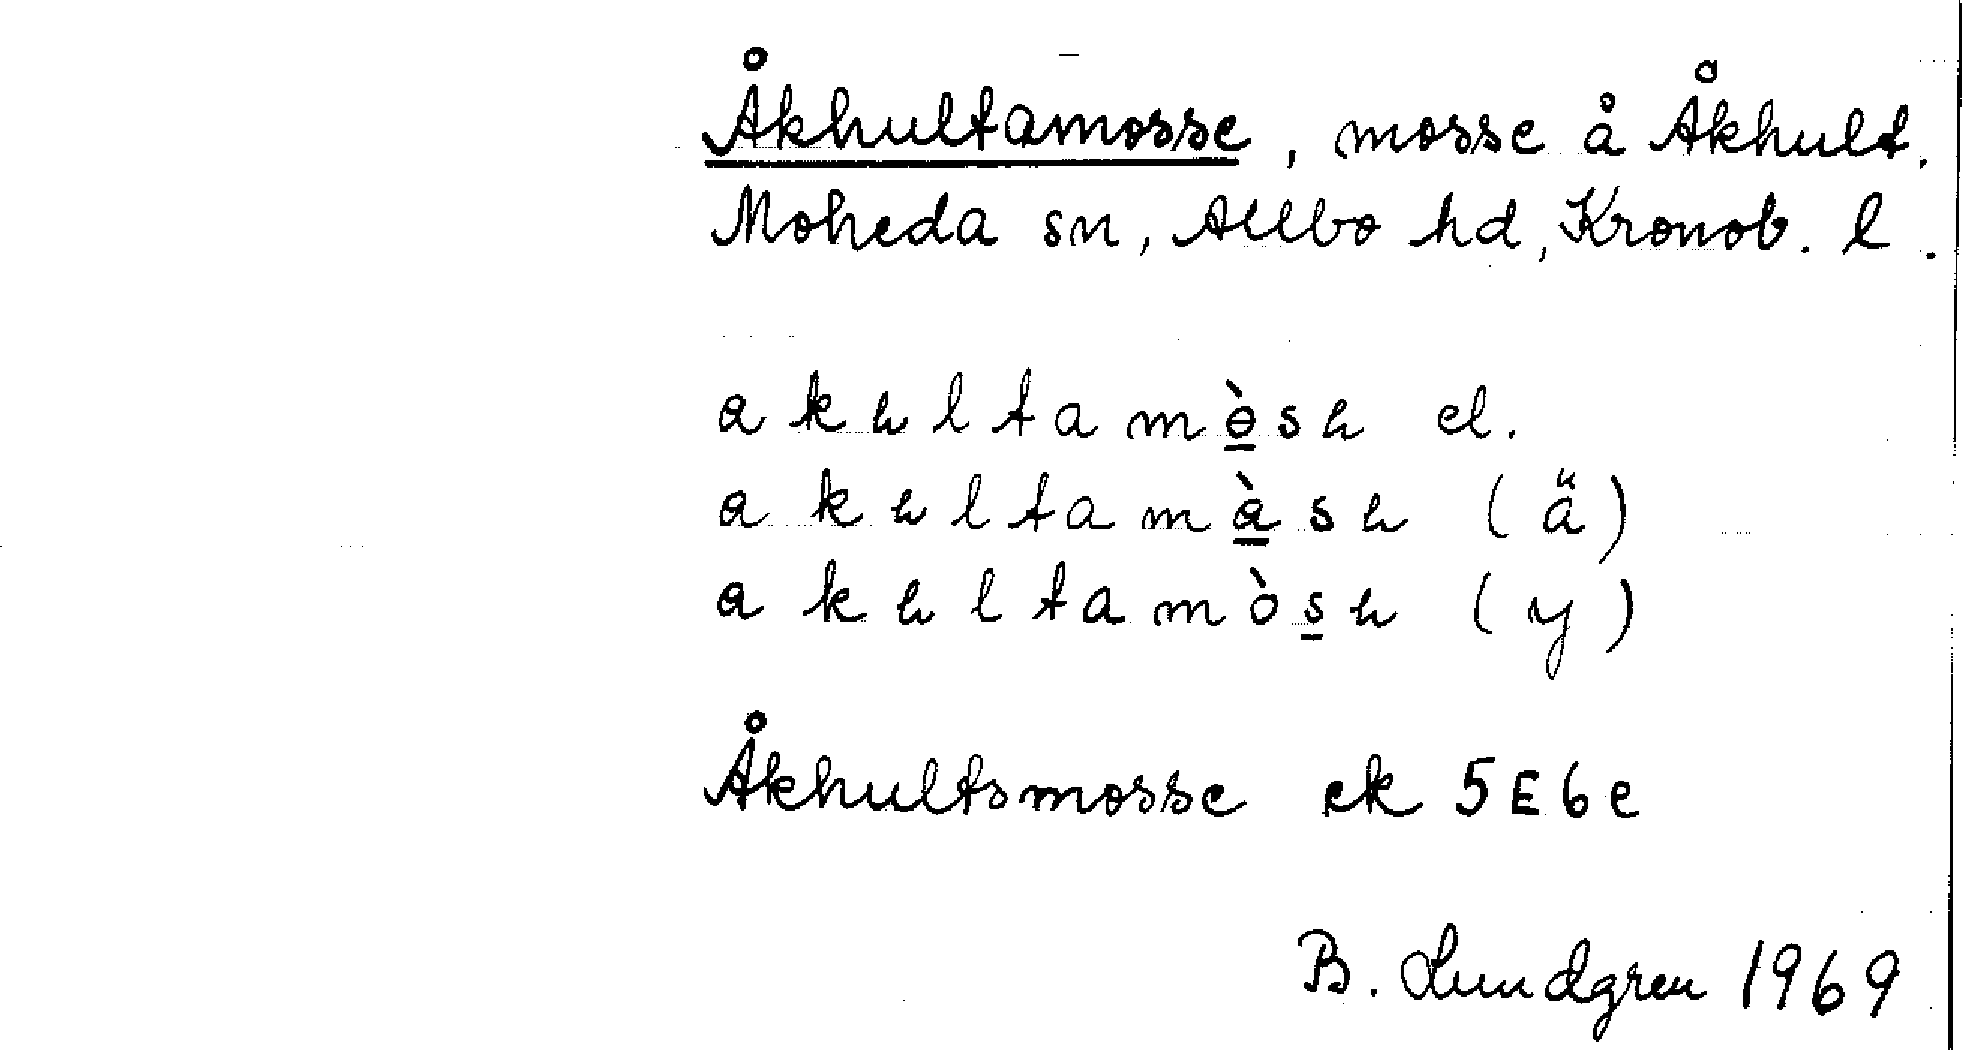 Åkhultamosse, mosse å Åkhult.
Moheda sn, Allbo hd, Kronob. l.
a k u l t a m ò s u el.
a k u l t a m à s u (ä)
a k u l t a m ò s u (y)
Åkhultsmosse ek 5E6e
B. Lundgren 1969